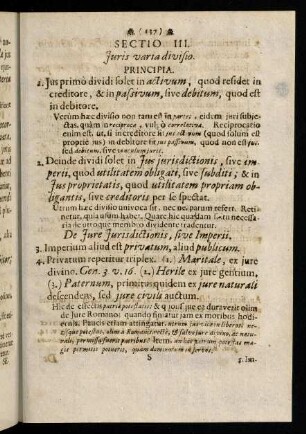 (137)
SECTIO III.
Juris varia divisio.
PRINCIPIA.
1. Jus primò dividi solet in activum, quod residet in
creditore, & in passivum, sive debitum, quod est
in debitore.
Verùm hæc divisio non tam est in partes, ejdem juri subje-
ctas, quàm in correlata. Reciprocatio
enim est, ut, si in creditore sit jus activum (quod solum est
propriè jus) in debitore sit jus passivum, quod non est jus,
sed debitum, sive vinculum juris.
2. Deinde dividi solet in Jus jurisdictionis, sive im-
perii, quod utilitatem obligati, sive subditi; & in
Jus proprietatis, quod utilitatem propriam ob-
ligantis, sive creditoris per se spectat.
Utrùm hæc divisio univoca sit, necne, parum refert. Reti-
netur, quia usum habet. Quare hic quædam satis necessa-
ria de utroque membro dividente tradentur.
De Jure Jurisdictionis, sive Imperii.
3. Imperium aliud est privatum, aliud publicum.
4. Privatum reperitur triplex. (1.) Maritale, ex jure
divino. Gen. 3. v. 16. (2.) Herile ex jure gentium,
(3.) Paternum, primitus quidem ex jure naturali
descendens, sed jure civili auctum.
Hic de effectu patriæ potestatis & quousque ea duraverit olim
de Jure Romano: quando finiatur jam ex moribus hodi-
ernis. Paucis etiam attingatur,
S
5. Im-